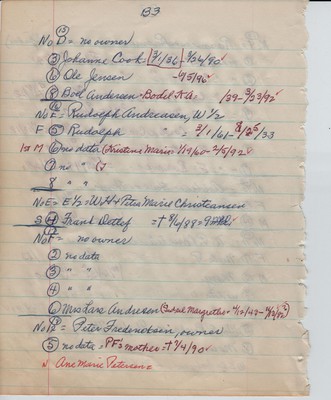 B3
(15)
No D = no owner
(3) Johanne Cook [3/1/36 - 5/24/90 ✓
(6) Ole Jensen - 4/5/90 ✓
(8) Bodl Andersen = Bodel K.A. /29 - 3/23/92 ✓
No E = Rudolph Andreasen, W 1/2
F (5) Rudolph " = 3/1/61 - 8/25/33
1st M (6) no data (Kristine Marie = 1/19/60 - 2/5/92 ✓
(7) no " (7
8 " "
No E = E 1/2 = W.H. + Petra Marie Christiansen
S (4) Frank Detlof = † 8/4/88 =
No F = no owner
(2) no data
(3) " "
(4) " "
(6) Mrs Lars Andresen (Bodel Margrethe =
No 12 = Peter Frederiksen, owner
(5) no data = PF's mother = † 7/4/90 ✓
Ane Marie Petersen =